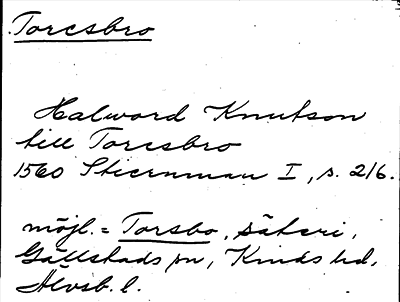 Torcsbro
Halword Knutson
till Torcsbro
1560 Stiernman I, s. 216.
möjl. = Torsbo, säteri,
Gällstads sn, Kinds hd,
Älvsb. l.